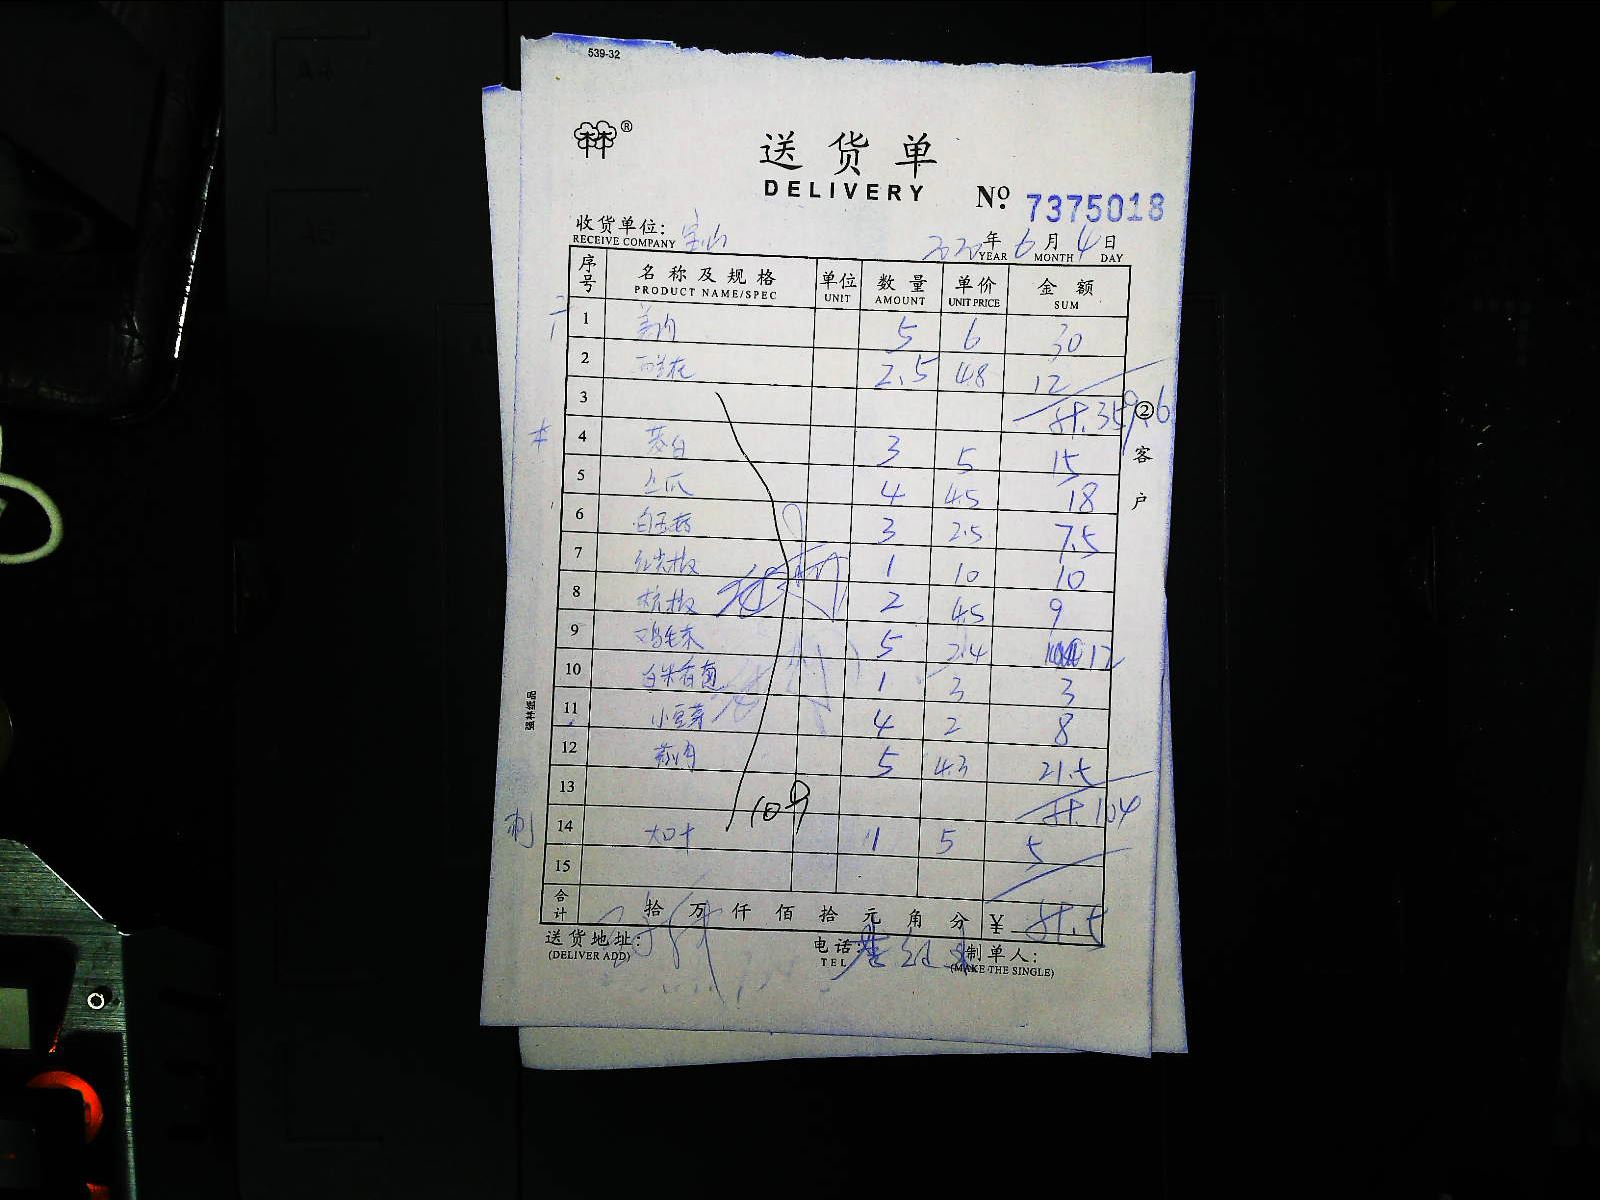 539-32
送货单
DELIVERY
№ 7375018
收货单位: 宝山
RECEIVE COMPANY
2020年6月4日
YEAR MONTH DAY
序号 名称及规格 单位 数量 单价 金额
PRODUCT NAME/SPEC UNIT AMOUNT UNIT PRICE SUM
1 5 6 30
2 西兰花 2.5 4.8 12
3 计.359.6
②客户
4 茭白 3 5 15
5 丝瓜 4 4.5 18
6 白玉菇 3 2.5 7.5
7 红尖椒 1 10 10
8 杭椒 2 4.5 9
9 鸡毛菜 5 2.4 12
10 白米香菌 1 3 3
11 小豆芽 4 2 8
12 5 4.3 21.5
13 计.104
14 大口十 1 5 5
15
合计 拾 万 仟 佰 拾 元 角 分 ¥ 计.5
强林纸品
送货地址:
(DELIVER ADD)
电话:
TEL
制单人:
(MAKE THE SINGLE)